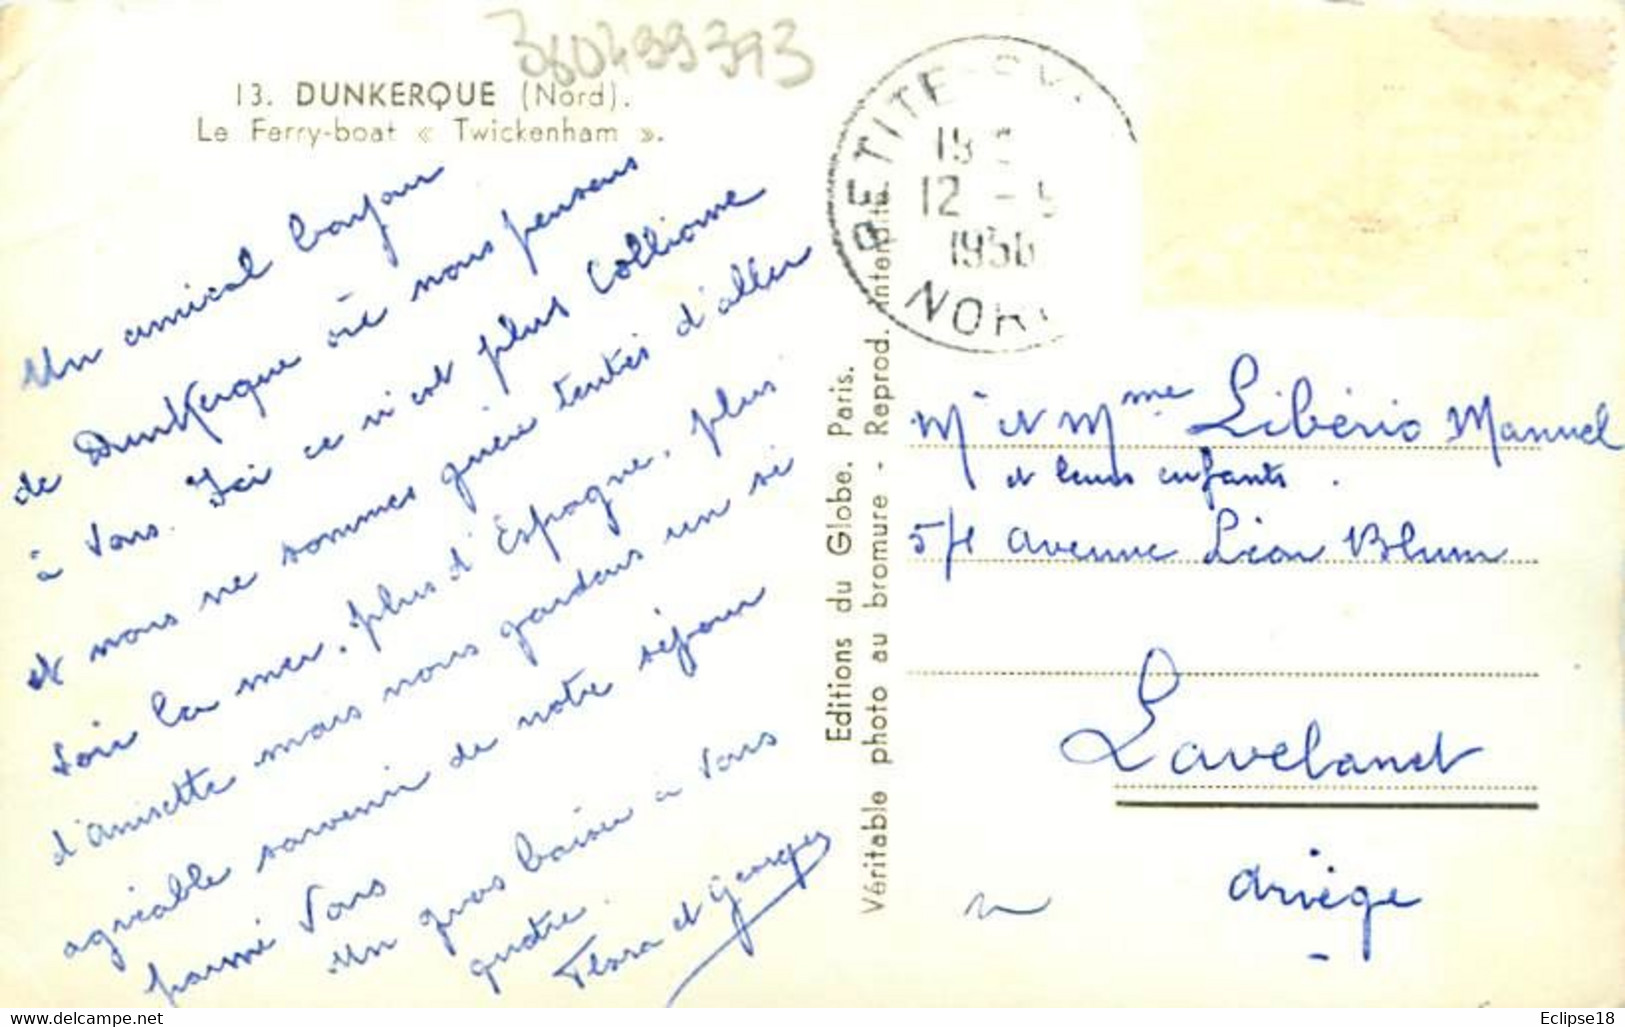 360499393
13. DUNKERQUE (Nord).
Le Ferry-boat « Twickenham ».
Un amical bonjour
de Dunkerque où nous pensons
à vous. Ici ce n'est plus Collioure
et nous ne sommes guère tentés d'aller
voir la mer, plus d'Espagne, plus
d'anisette mais nous gardons un si
agréable souvenir de notre séjour
parmi vous
Un gros baiser à vous
quatre.
Flora et Georges
Editions du Globe. Paris.
Véritable photo au bromure - Reprod. interdite.
PETITE-SY
12 - 5
1956
NORD
Mr et Mme Libério Manuel
et leurs enfants.
54 Avenue Léon Blum
Lavelanet
Ariège
Eclipse18